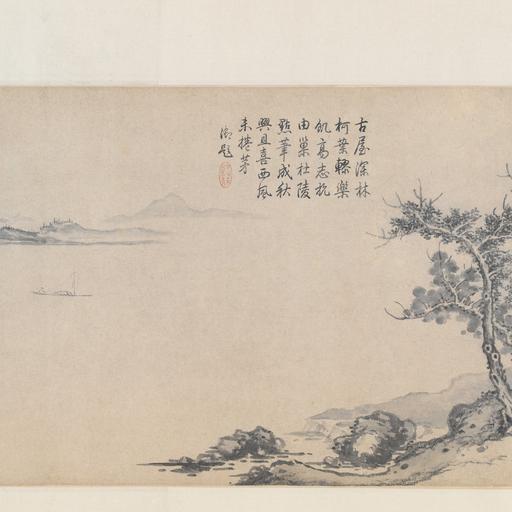 古屋深林
柯葉轇樂
飢高志抗
由巢杜陵
點筆成秋
興且喜西風
未捲茅
御題